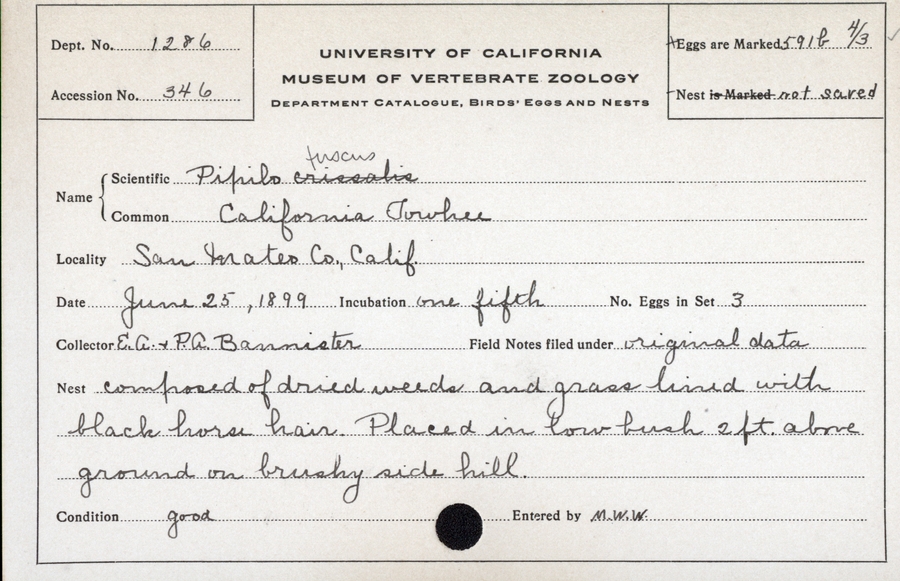 Dept. No. 1286
Accession No. 346
UNIVERSITY OF CALIFORNIA
MUSEUM OF VERTEBRATE ZOOLOGY
DEPARTMENT CATALOGUE, BIRDS' EGGS AND NESTS
Eggs are Marked 591b 4/3
Nest is Marked not saved
fuscus
Name { Scientific Pipilo crissalis
Common California Towhee
Locality San Mateo Co., Calif.
Date June 25, 1899 Incubation one fifth No. Eggs in Set 3
Collector E.A. & P.A. Bannister Field Notes filed under original data
Nest composed of dried weeds and grass lined with
black horse hair. Placed in low bush 2 ft. above
ground on brushy side hill.
Condition good Entered by M.W.W.